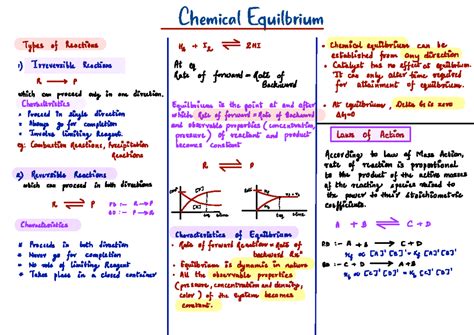 Chemical Equilbrium
Types of Reactions
1) Irreversible Reactions
R → P
which can proceed only in one direction.
Characteristics
Proceed in single direction
Always go for completion
Involve limiting Reagent
eg: Combustion Reactions, Precipitation
Reactions
2) Reversible Reactions
which can proceed in both directions
R ⇌ P
FD :- R → P
BD :- P → R
Characteristics
Proceeds in both direction
Never go for completion
No role of limiting Reagent
Takes place in a closed container
H₂ + I₂ ⇌ 2HI
At eq
Rate of forward = Rate of
Backward
Equilbrium is the point at and after
which Rate of forward = Rate of Backward
and observable properties (concentration,
pressure) of reactant and product
becomes constant
R ⇌ P
Characteristics of Equilbrium
Rate of forward Reaction = Rate of
backward Rxn
Equilbrium is dynamic in nature
All the observable properties
(pressure, concentration and density,
color) of the system becomes
constant.
Chemical equilbrium can be
established from any direction
Catalyst has no effect at equilbrium.
It can only alter time required
for attainment of equilbrium.
At equilbrium, Delta G is zero
ΔG=0
Laws of Action
According to law of Mass Action,
rate of reaction is proportional
to the product of the active masses
of the reacting species raised to
the power to their stoichiometric
coefficients.
A + B ⇌ C + D
FD :- A + B → C + D
BD :- C + D → A + B